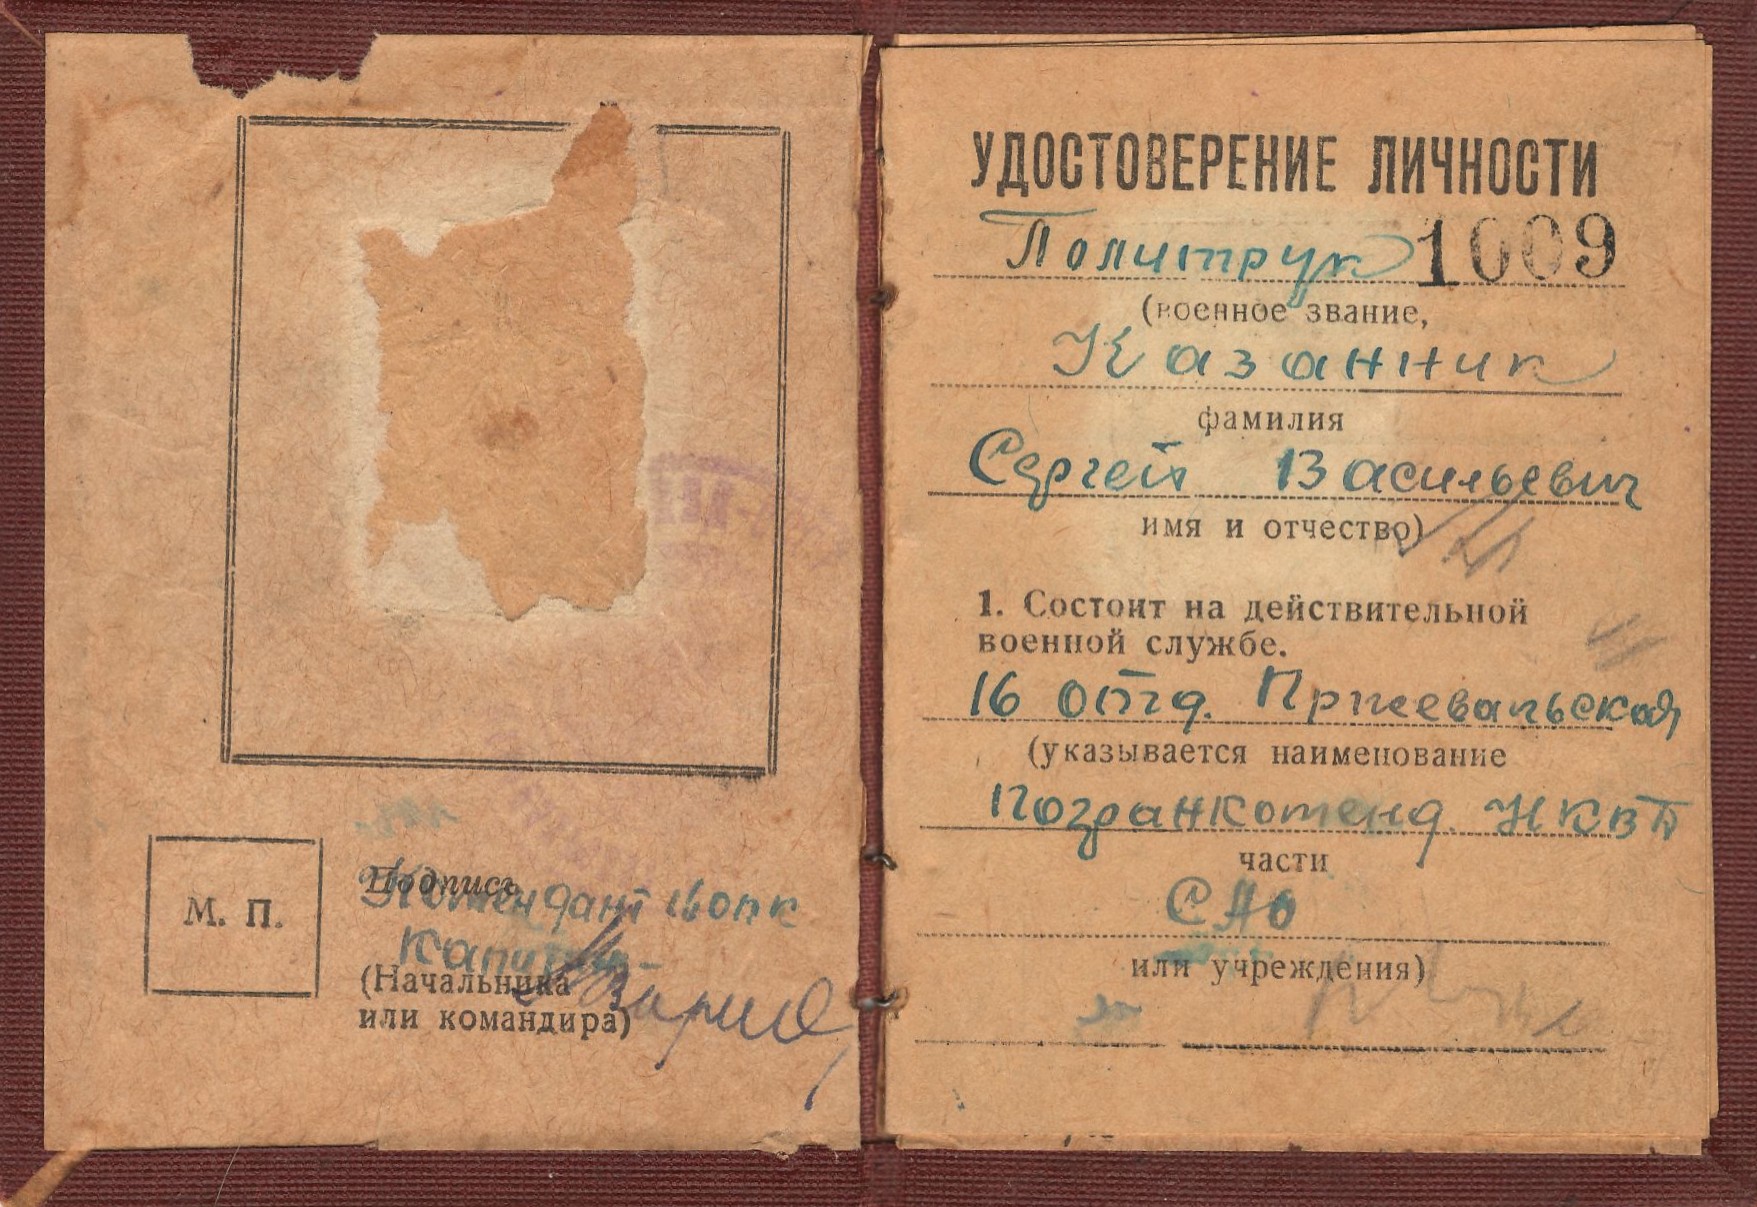 М. П.
Подпись
Комендант 16 опк
Капитан
(Начальника
или командира)
УДОСТОВЕРЕНИЕ ЛИЧНОСТИ
Политрук 1009
(военное звание,
Казанник
фамилия
Сергей Васильевич
имя и отчество)
1. Состоит на действительной
военной службе.
16 отд. Пржевальской
(указывается наименование
погранкоменд. НКВД
части
САО
или учреждения)